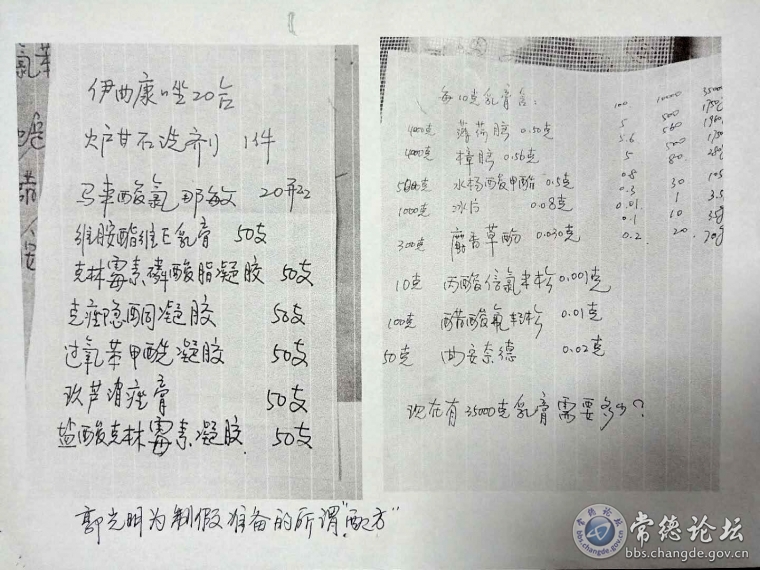 氯苯
伊曲康唑20台
炉甘石洗剂 1件
马来酸氯那敏 20瓶
维胺酯维E乳膏 50支
克林霉素磷酸脂凝胶 50支
克痤隐酮凝胶 50支
过氧苯甲酰凝胶 50支
玖芦消痤膏 50支
盐酸克林霉素凝胶 50支
每10克乳膏含: 100 10000 35000
4000克 薄荷脑 0.50克 5 500 1750
4000克 樟脑 0.56克 5.6 560 1960
5000克 水杨酸甲酯 0.5克 5 500 1750
1000克 冰片 0.08克 0.8 80 280
300克 麝香草酚 0.030克 0.3 30 105
10克 丙酸倍氯米松 0.001克 0.01 1 3.5
100克 醋酸氟轻松 0.01克 0.1 10 35g
50克 曲安奈德 0.02克 0.2 20 70g
现在有35000克乳膏需要多少?
郭光明为制假准备的所谓"配方"
常德论坛
bbs.changde.gov.cn